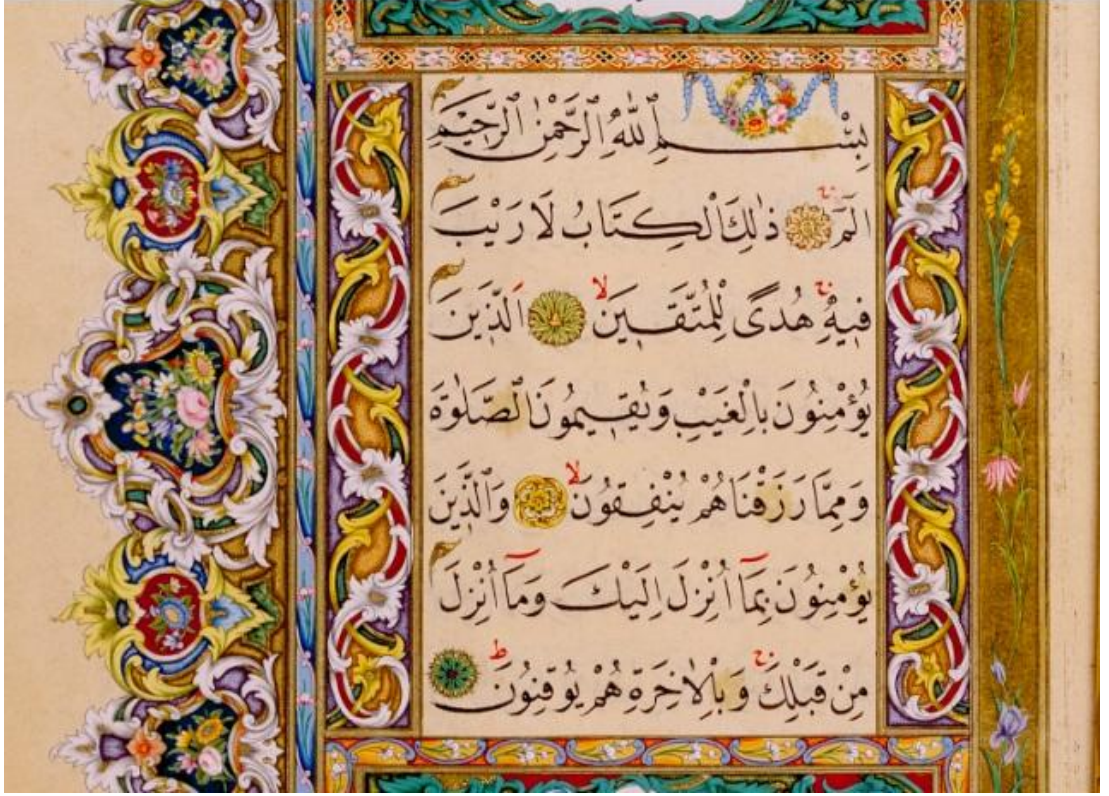 بِسْمِ ٱللّٰهِ ٱلرَّحْمٰنِ ٱلرَّحِيمِ
الٓمٓ ۚ ذٰلِكَ الْكِتَابُ لَا رَيْبَ
فِيهِ ۚ هُدًى لِلْمُتَّقِينَ ۙ اَلَّذِينَ
يُؤْمِنُونَ بِالْغَيْبِ وَيُقِيمُونَ الصَّلٰوةَ
وَمِمَّا رَزَقْنَاهُمْ يُنْفِقُونَ ۙ وَالَّذِينَ
يُؤْمِنُونَ بِمَٓا اُنْزِلَ اِلَيْكَ وَمَٓا اُنْزِلَ
مِنْ قَبْلِكَ ۚ وَبِالْاٰخِرَةِ هُمْ يُوقِنُونَ ۜ